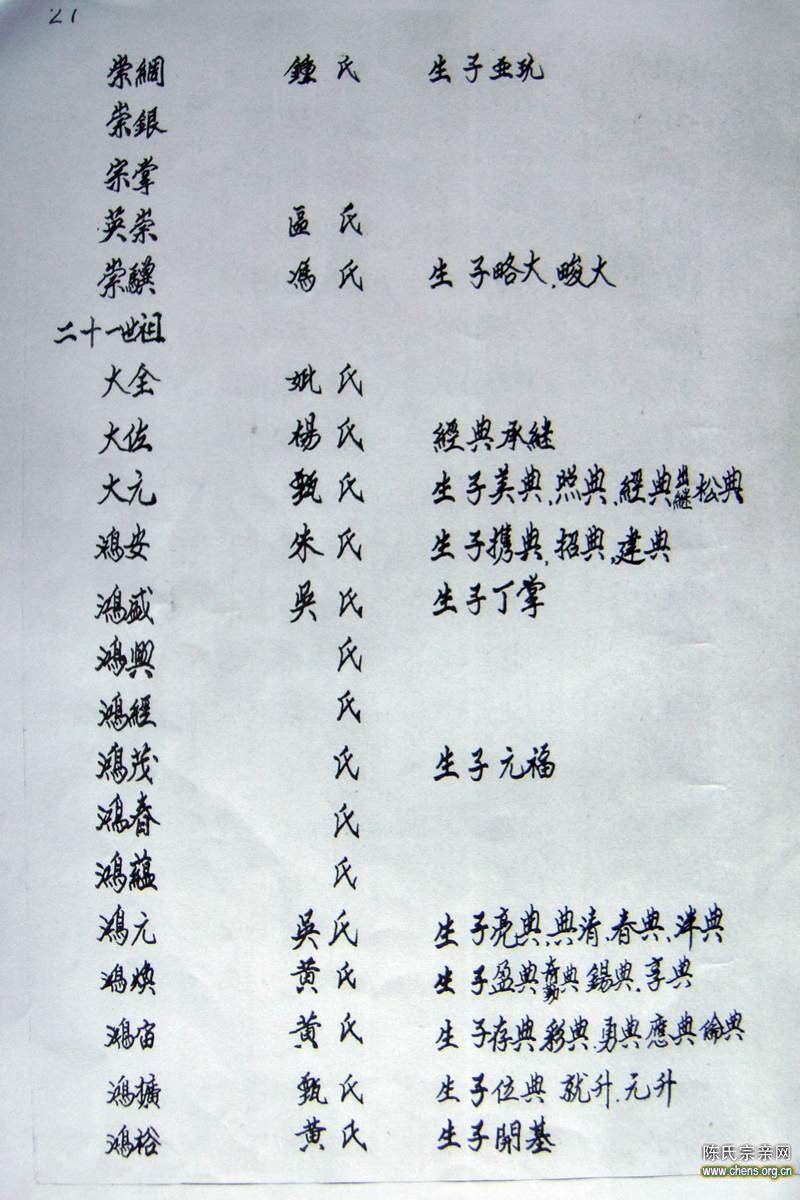 21
崇綱 鍾氏 生子亚玧
崇銀
宗掌
英崇 區氏
崇驥 馮氏 生子略大.畯大
二十一世祖
大全 妣氏
大佐 楊氏 經典承继
大元 甄氏 生子美典.照典.經典出繼松典
鴻安 朱氏 生子携典.招典.建典
鴻盛 吳氏 生子丁掌
鴻興 氏
鴻經 氏
鴻茂 氏 生子元福
鴻春 氏
鴻蘊 氏
鴻元 吳氏 生子亮典.典清.春典.洋典
鴻煥 黄氏 生子盈典 典錫典.享典
鴻宙 黄氏 生子存典彩典.勇典應典倫典
鴻擴 甄氏 生子位典 就升.元升
鴻裕 黄氏 生子開基
陈氏宗亲网
www.chens.org.cn